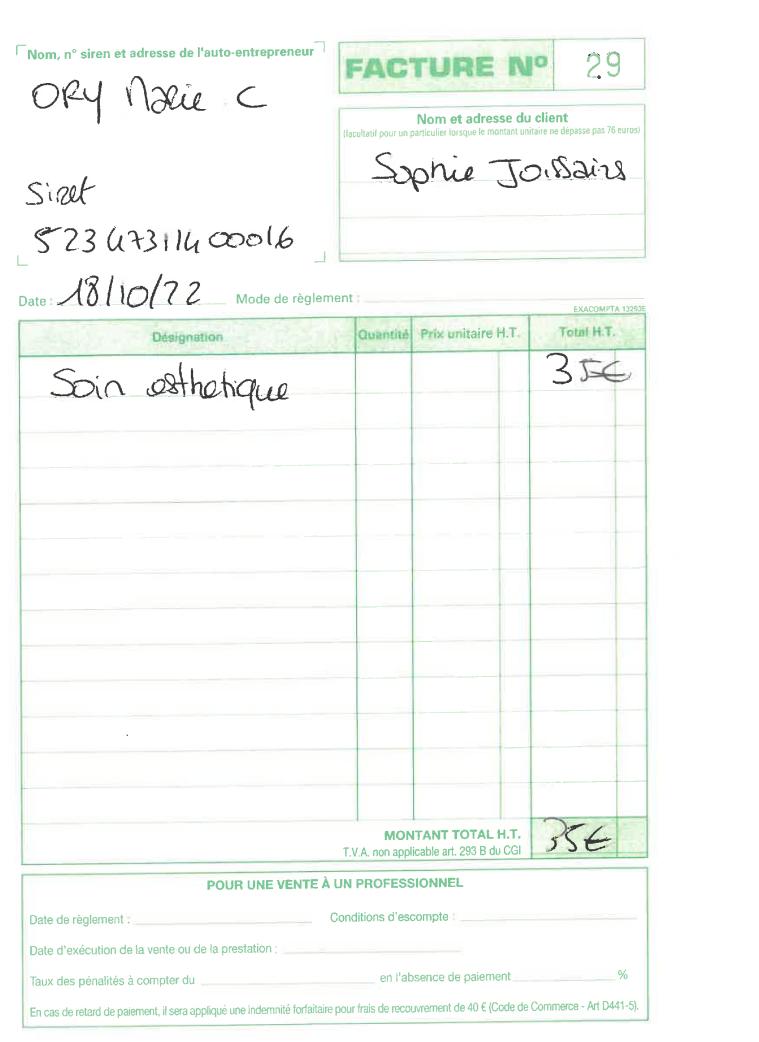 Nom, n° siren et adresse de l'auto-entrepreneur
ORY Marie C
Siret
523 473114 00016
FACTURE N° 29
Nom et adresse du client
(facultatif pour un particulier lorsque le montant unitaire ne dépasse pas 76 euros)
Sophie Joissains
Date : 18/10/22 Mode de règlement :
EXACOMPTA 13293E
Désignation Quantité Prix unitaire H.T. Total H.T.
Soin esthetique 35€
MONTANT TOTAL H.T. 35€
T.V.A. non applicable art. 293 B du CGI
POUR UNE VENTE À UN PROFESSIONNEL
Date de règlement : Conditions d'escompte :
Date d'exécution de la vente ou de la prestation :
Taux des pénalités à compter du en l'absence de paiement %
En cas de retard de paiement, il sera appliqué une indemnité forfaitaire pour frais de recouvrement de 40 € (Code de Commerce - Art D441-5).